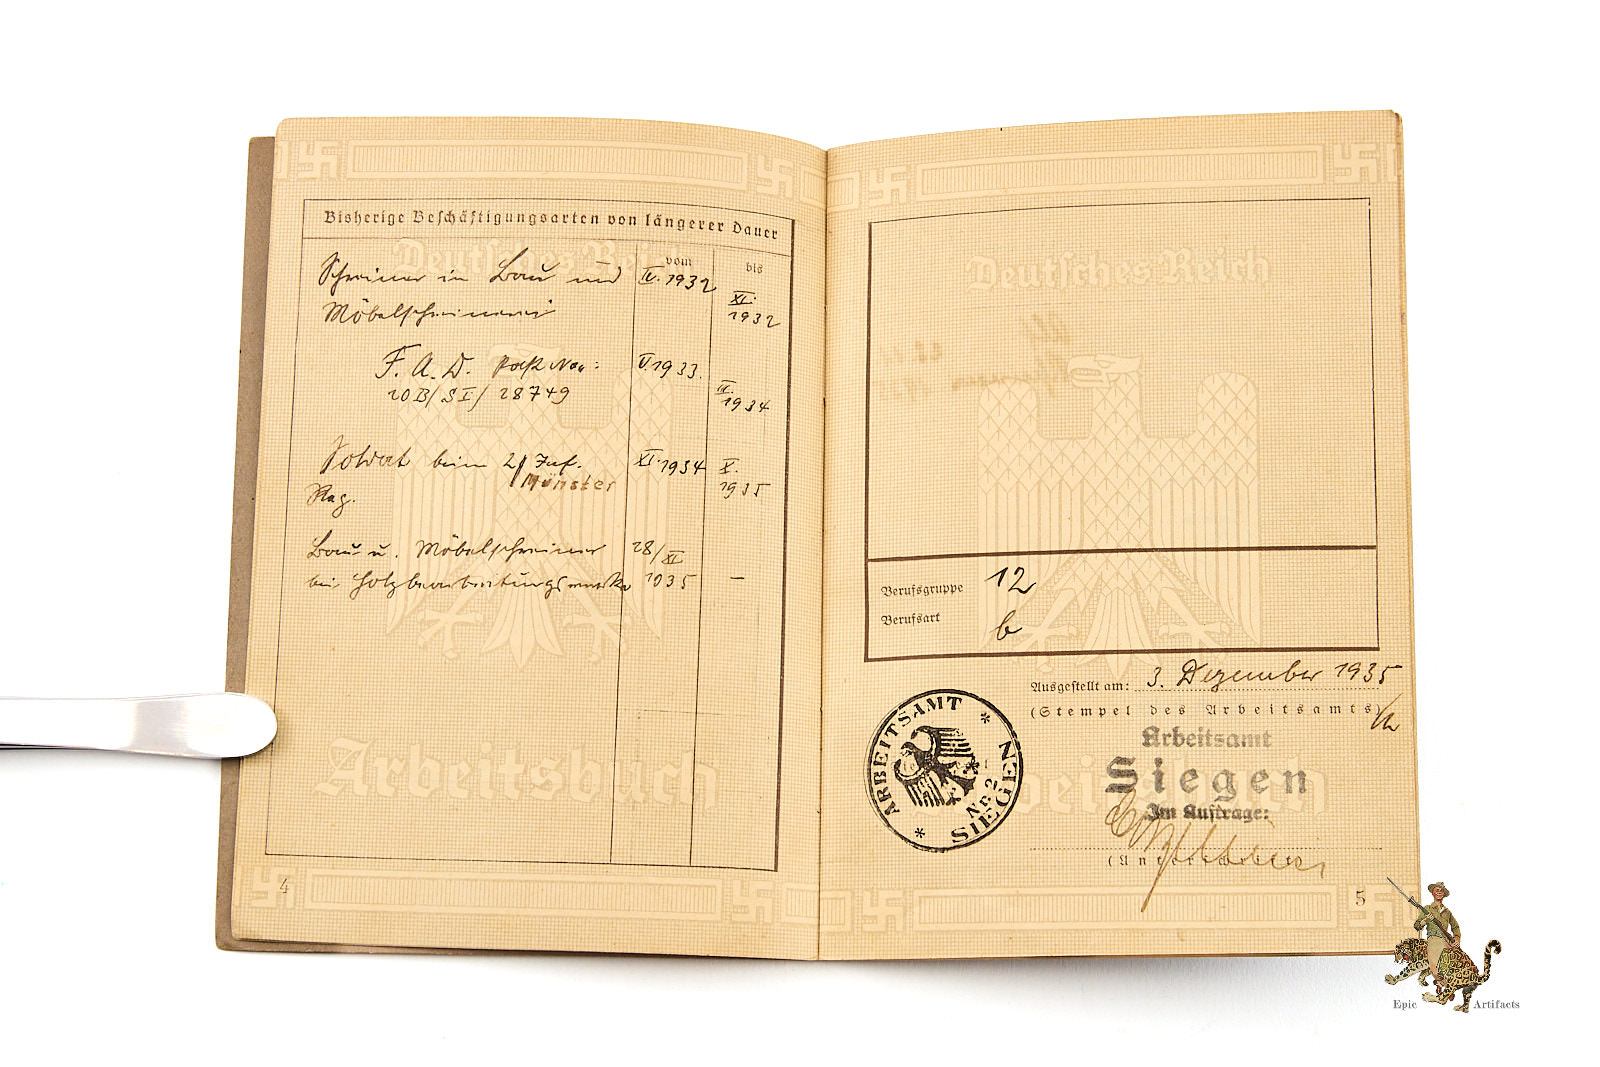 Bisherige Beschäftigungsarten von längerer Dauer
vom
bis
Schreiner in Bau und IV. 1932
Möbelschreinerei XI. 1932
F. A. D. Paß No: V. 1933.
20B/SI/28749 1934
Soldat beim 2/Inf. XI. 1934 X. 1935
Münster
Reg.
Bau- u. Möbelschreiner 28/XI
bei Holzbearbeitungswerke 1935 –
Deutsches Reich
Arbeitsbuch
4
Deutsches Reich
Berufsgruppe 12
Berufsart b
Ausgestellt am: 3. Dezember 1935
(Stempel des Arbeitsamts)
ARBEITSAMT
SIEGEN
Nr. 2
Arbeitsamt
Siegen
Im Auftrage:
(Unterschrift)
5
Epic Artifacts